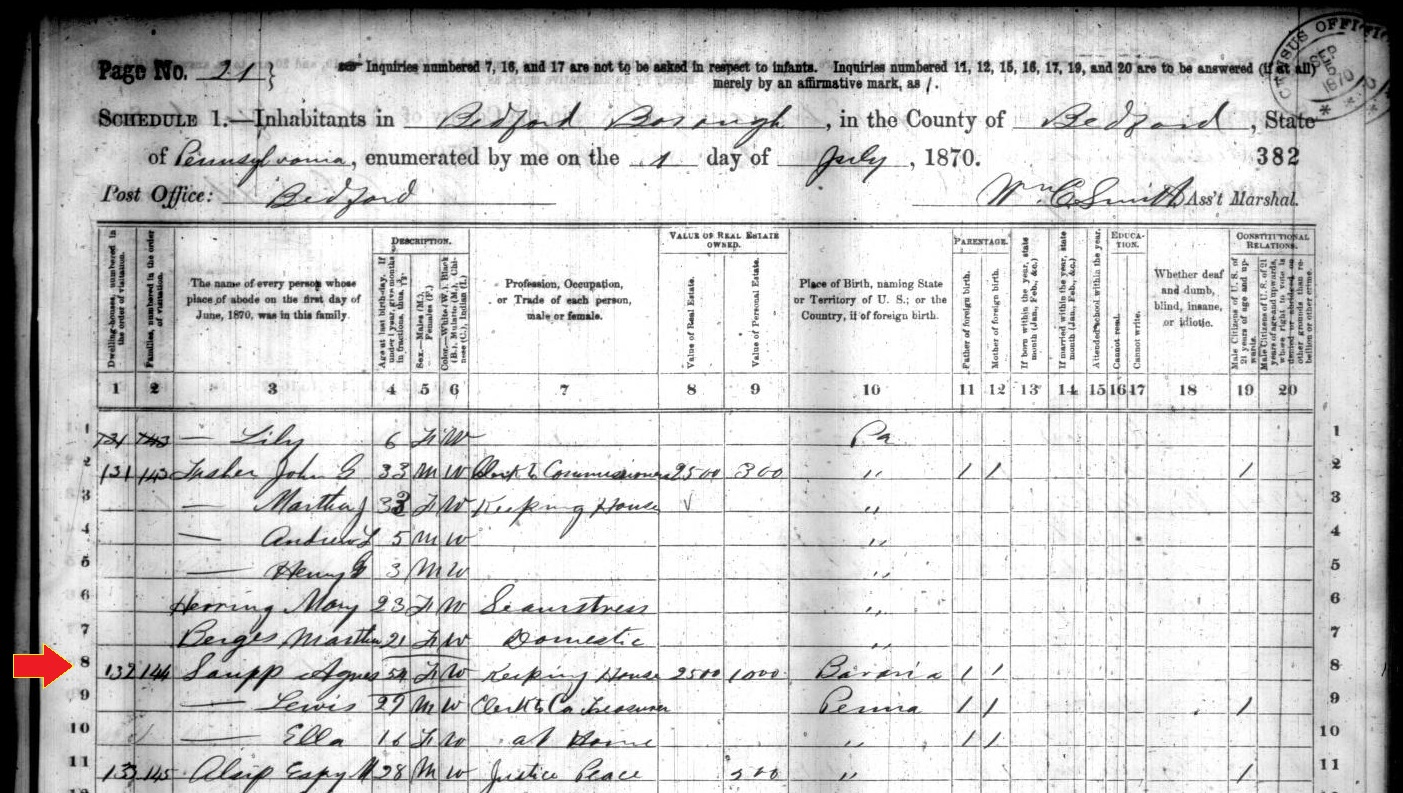 Page No. 21
Inquiries numbered 7, 16, and 17 are not to be asked in respect to infants. Inquiries numbered 11, 12, 15, 16, 17, 19, and 20 are to be answered (if at all)
merely by an affirmative mark, as /.
SCHEDULE 1.—Inhabitants in Bedford Borough, in the County of Bedford, State
of Pennsylvania, enumerated by me on the 1 day of July, 1870. 382
Post Office: Bedford Wm C Smith Ass't Marshal.
CENSUS OFFICE 1870
DESCRIPTION. VALUE OF REAL ESTATE OWNED. PARENTAGE. EDUCATION. CONSTITUTIONAL RELATIONS.
Dwelling-houses, numbered in the order of visitation.
Families, numbered in the order of visitation.
The name of every person whose place of abode on the first day of June, 1870, was in this family.
Age at last birth-day. If under 1 year, give months in fractions, thus,
Sex.—Males (M.), Females (F.)
Color.—White (W.), Black (B.), Mulatto (M.), Chinese (C.), Indian (I.)
Profession, Occupation, or Trade of each person, male or female.
Value of Real Estate.
Value of Personal Estate.
Place of Birth, naming State or Territory of U. S.; or the Country, if of foreign birth.
Father of foreign birth.
Mother of foreign birth.
If born within the year, state month (Jan., Feb., &c.)
If married within the year, state month (Jan., Feb., &c.)
Attended school within the year.
Cannot read.
Cannot write.
Whether deaf and dumb, blind, insane, or idiotic.
Male Citizens of U. S. of 21 years of age and upwards.
Male Citizens of U. S. of 21 years of age and upwards, whose right to vote is denied or abridged on other grounds than rebellion or other crime.
1 2 3 4 5 6 7 8 9 10 11 12 13 14 15 16 17 18 19 20
1 — Lily 6 F W Pa 1
2 131 143 John G 33 M W Clerk to Commissioners 2500 300 " / / / 2
3 — Martha J F W Keeping House " 3
4 — Andrew L 5 M W " 4
5 — Henry 3 M W " 5
6 Herring Mary 23 F W Seamstress " 6
7 Berges Martha 21 F W Domestic " 7
8 132 144 Saupp Agnes 54 F W Keeping House 2500 1000 Bavaria / / 8
9 — Lewis 27 M W Clerk to Co Treasurer Penna / / / 9
10 — Ella 16 F W at Home " / / 10
11 133 145 Alsip Espy M 28 M W Justice Peace 500 " / 11